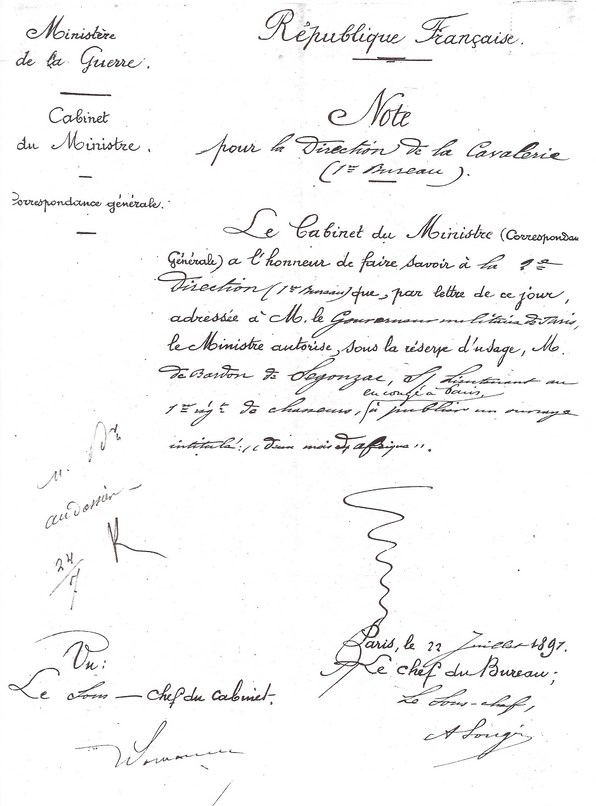 Ministère
de la Guerre.
Cabinet
du Ministre.
Correspondance générale.
République Française.
Note
pour la Direction de la Cavalerie
(1er Bureau).
Le Cabinet du Ministre (Correspondan
Générale) a l'honneur de faire savoir à la 2e
Direction (1er Bureau) que, par lettre de ce jour,
adressée à M. le Gouverneur militaire de Paris,
le Ministre autorise, sous la réserve d'usage, M.
de Bardon de Segonzac, S/ Lieutenant au
en congé à Paris,
1er régt de chasseurs, à publier un ouvrage
intitulé: "deux mois d'Afrique".
au dossier
24/7
Paris, le 22 Juillet 1891.
Le chef du Bureau;
Le Sous-chef,
Vu:
Le Sous-chef du cabinet.